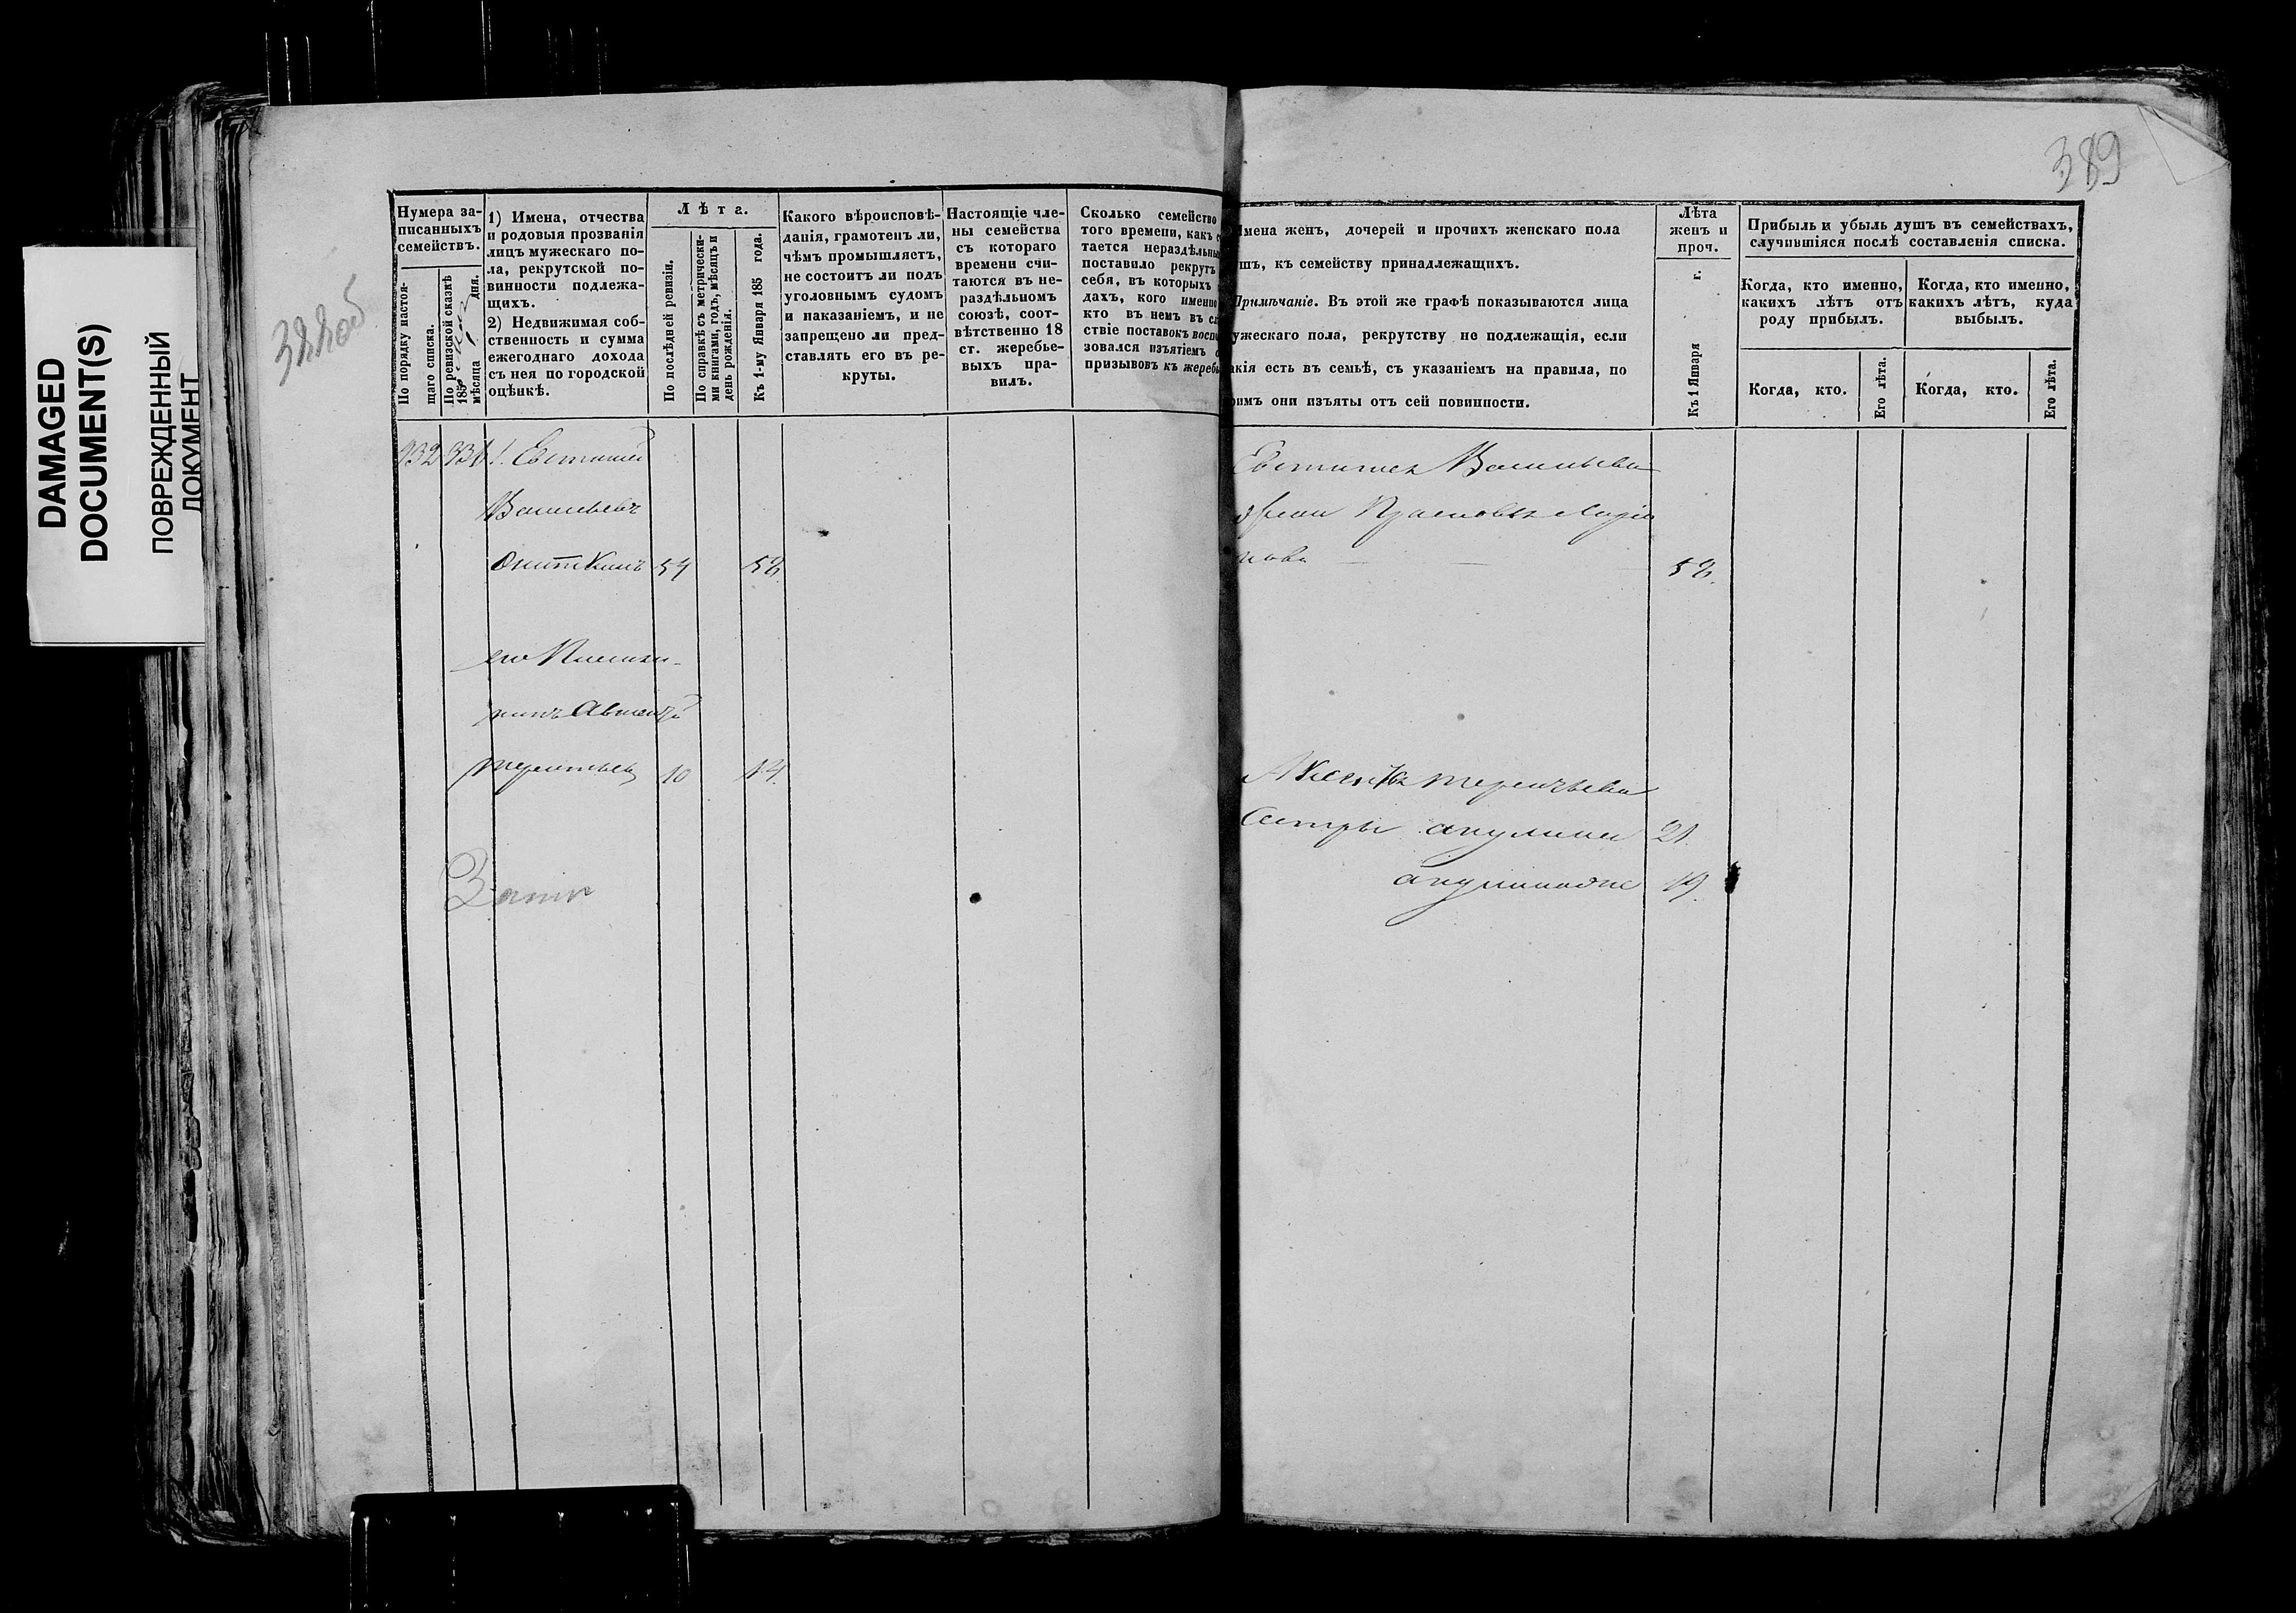 DAMAGED
DOCUMENT(S)
ПОВРЕЖДЕННЫЙ
ДОКУМЕНТ
388об
389
Нумера за-
писанныхъ
семействъ.
По порядку настоя-
щаго списка.
По ревизской сказкѣ
185
мѣсяца дня.
1) Имена, отчества
и родовыя прозванія
лицъ мужескаго по-
ла, рекрутской по-
винности подлежа-
щихъ.
2) Недвижимая соб-
ственность и сумма
ежегоднаго дохода
съ нея по городской
оцѣнкѣ.
Лѣта.
По послѣдней ревизіи.
По справкѣ съ метрически-
ми книгами, годъ, мѣсяцъ и
день рожденія.
Къ 1-му Января 185 года.
Какого вѣроисповѣ-
данія, грамотенъ ли,
чѣмъ промышляетъ,
не состоитъ ли подъ
уголовнымъ судомъ
и наказаніемъ, и не
запрещено ли пред-
ставлять его въ ре-
круты.
Настоящіе чле-
ны семейства
съ котораго
времени счи-
таются въ не-
раздѣльномъ
союзѣ, соот-
вѣтственно 18
ст. жеребье-
выхъ пра-
вилъ.
Сколько семейство
того времени, какъ с
тается нераздѣльны
поставило рекрутъ
себя, въ которыхъ
дахъ, кого именно
кто въ немъ въ сл
ствіе поставокъ воспо
зовался изъятіемъ о
призывовъ къ жеребь
Имена женъ, дочерей и прочихъ женскаго пола
ушъ, къ семейству принадлежащихъ.
Примѣчаніе. Въ этой же графѣ показываются лица
ужескаго пола, рекрутству не подлежащія, если
акія есть въ семьѣ, съ указаніемъ на правила, по
оимъ они изъяты отъ сей повинности.
Лѣта
женъ и
проч.
Къ 1 Января г.
Прибыль и убыль душъ въ семействахъ,
случившіяся послѣ составленія списка.
Когда, кто именно,
какихъ лѣтъ отъ
роду прибылъ.
Когда, кто именно,
какихъ лѣтъ, куда
выбылъ.
Когда, кто.
Его лѣта.
Когда, кто.
Его лѣта.
932 931 1. Евтитей
Васильевъ
54 58.
его Племян-
никъ Авксентій
Терентьевъ 10 14.
Евтитея Васильева
жена Прасковья Ларіо
нова 58.
Авксентья Терентьева
Сестры Акулина 21.
19.